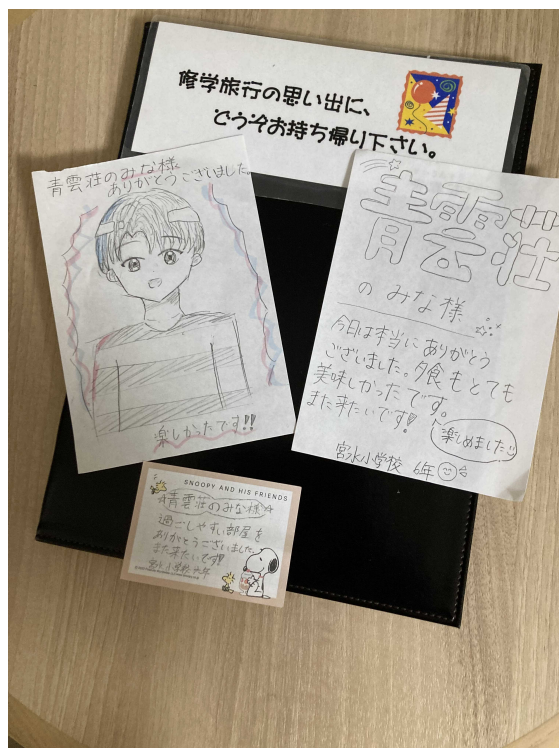 修学旅行の思い出に、
どうぞお持ち帰り下さい。
青雲荘のみな様
ありがとうございました。
楽しかったです!!
青雲荘
のみな様
今日は本当にありがとう
ございました。夕食もとても
美味しかったです。
また来たいです!
楽しめました
宮水小学校 6年
SNOOPY AND HIS FRIENDS
青雲荘のみな様
過ごしやすい部屋を
ありがとうございました。
また来たいです!!
宮水小学校 六年